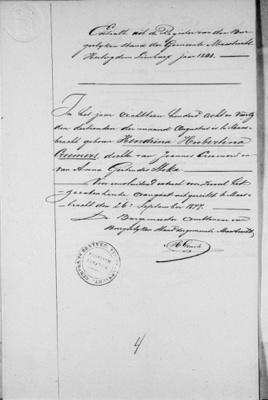 Extract uit de Registers van den Bur-
gerlijken stand der Gemeente Maastricht
Hertogdom Limburg jaar 1848.
In het jaar achttien honderd acht en veertig
den der maand Augustus is te Maas-
tricht geboren Hendrina Hubertina
Creemers, dochter van Joannes Creemers en
van Anna Gertrudis
Voor eensluidend extract
afgegeven te Maas-
tricht den 26 September 1877.
De Burgemeester Ambtenaar van
Burgerlijken Stand der gemeente Maastricht
4